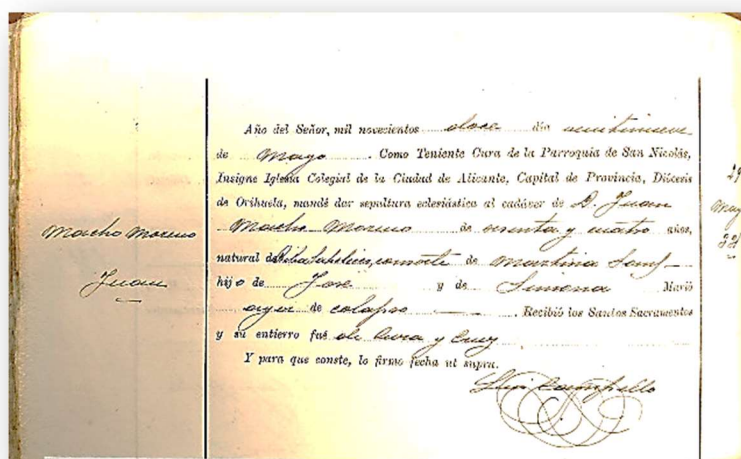 Año del Señor, mil novecientos doce día veintinueve
de Mayo. Como Teniente Cura de la Parroquia de San Nicolás,
Insigne Iglesia Colegial de la Ciudad de Alicante, Capital de Provincia, Diócesis
de Orihuela, mandé dar sepultura eclesiástica al cadáver de D. Juan
Macho Moreno de sesenta y cuatro años,
natural de consorte de Martina
hijo de José y de Simona Murió
ayer de colapso. Recibió los Santos Sacramentos
y su entierro fué de Cura y Cruz
Y para que conste, lo firmo fecha ut supra.
Luis Campillo
Macho Moreno
Juan
29
May